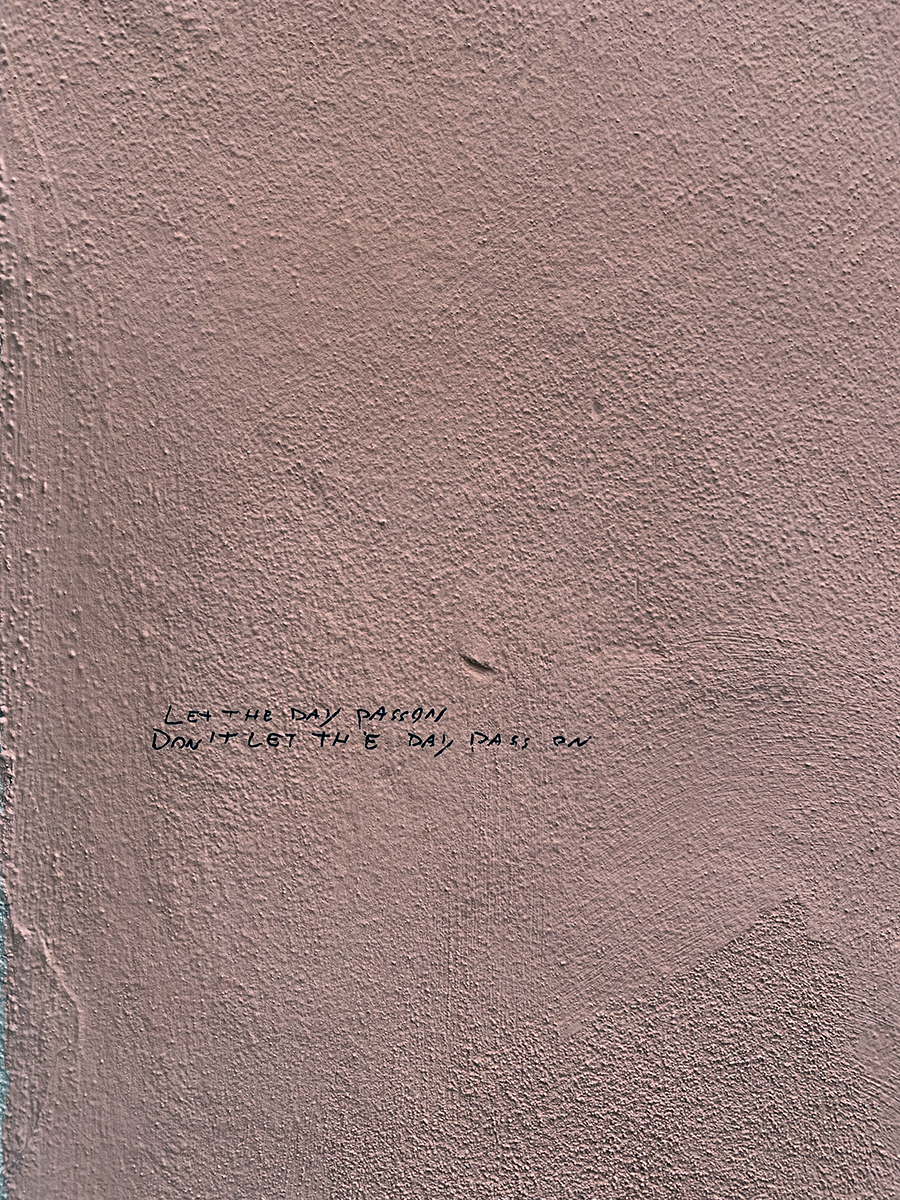 LET THE DAY PASS ON
DON'T LET THE DAY PASS ON